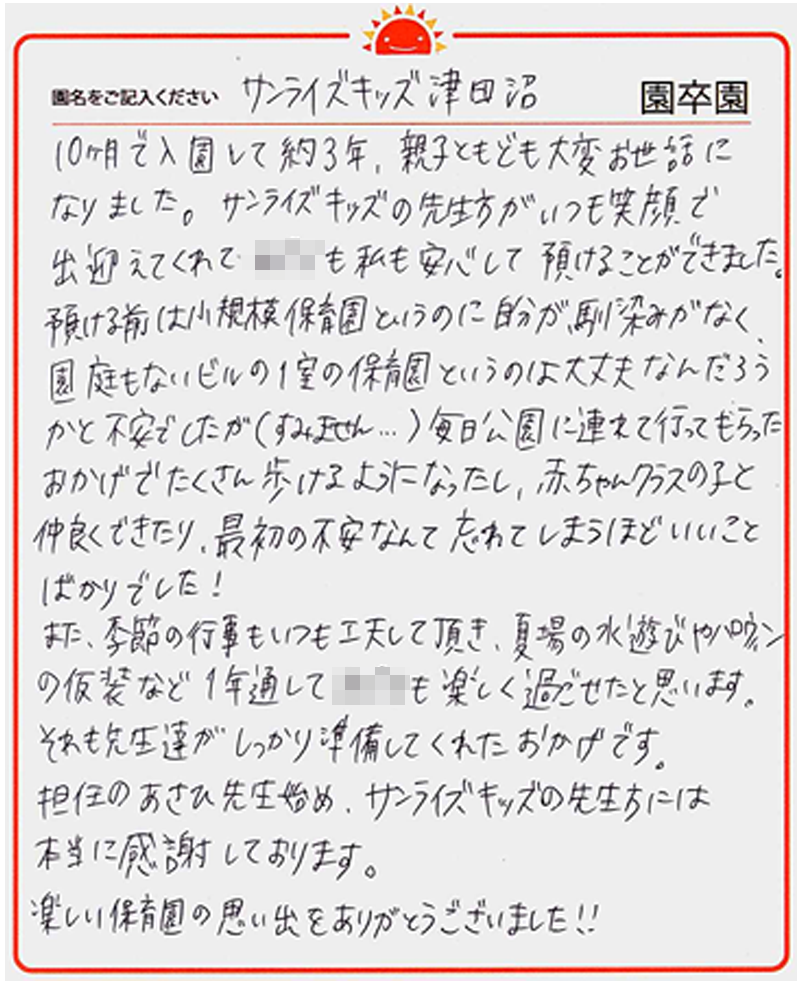 園名をご記入ください サンライズキッズ津田沼 園卒園
10ヶ月で入園して約3年、親子ともども大変お世話に
なりました。サンライズキッズの先生方がいつも笑顔で
出迎えてくれて も私も安心して預けることができました。
預ける前は小規模保育園というのに自分が馴染みがなく、
園庭もないビルの1室の保育園というのは大丈夫なんだろう
かと不安でしたが(すみません…)毎日公園に連れて行ってもらった
おかげでたくさん歩けるようになったし、赤ちゃんクラスの子と
仲良くできたり、最初の不安なんて忘れてしまうほどいいこと
ばかりでした!
また、季節の行事もいつも工夫して頂き、夏場の水遊びやハロウィン
の仮装など1年通して も楽しく過ごせたと思います。
それも先生達がしっかり準備してくれたおかげです。
担任のあさひ先生始め、サンライズキッズの先生方には
本当に感謝しております。
楽しい保育園の思い出をありがとうございました!!